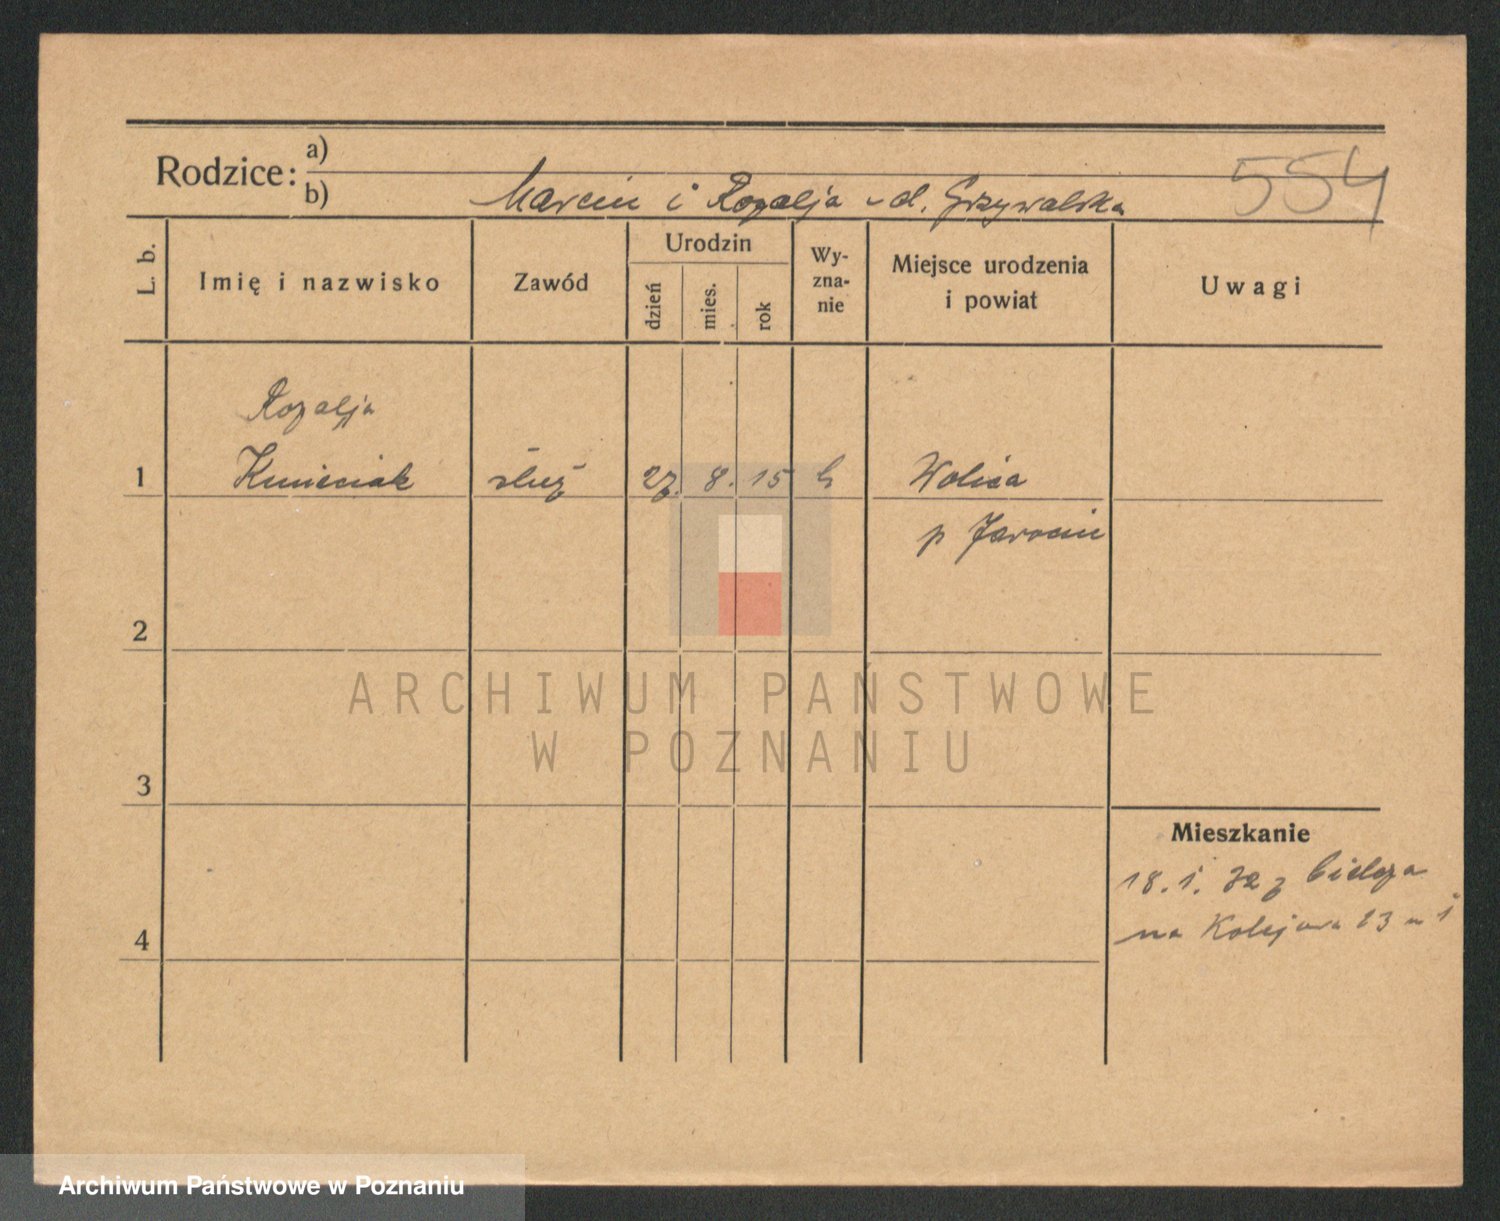 Rodzice: a)
b) Marcin i Rozalja -d. Grzywalska
554
L. b.
Imię i nazwisko
Zawód
Urodzin
dzień
mies.
rok
Wy-
zna-
nie
Miejsce urodzenia
i powiat
Uwagi
Rozalja
1 Kmieciak służ 27. 8. 15 k Wolica
p Jarocin
2
3
4
Mieszkanie
18. 1. 32 z
na Kolejowa 23 m 1
ARCHIWUM PAŃSTWOWE
W POZNANIU
Archiwum Państwowe w Poznaniu